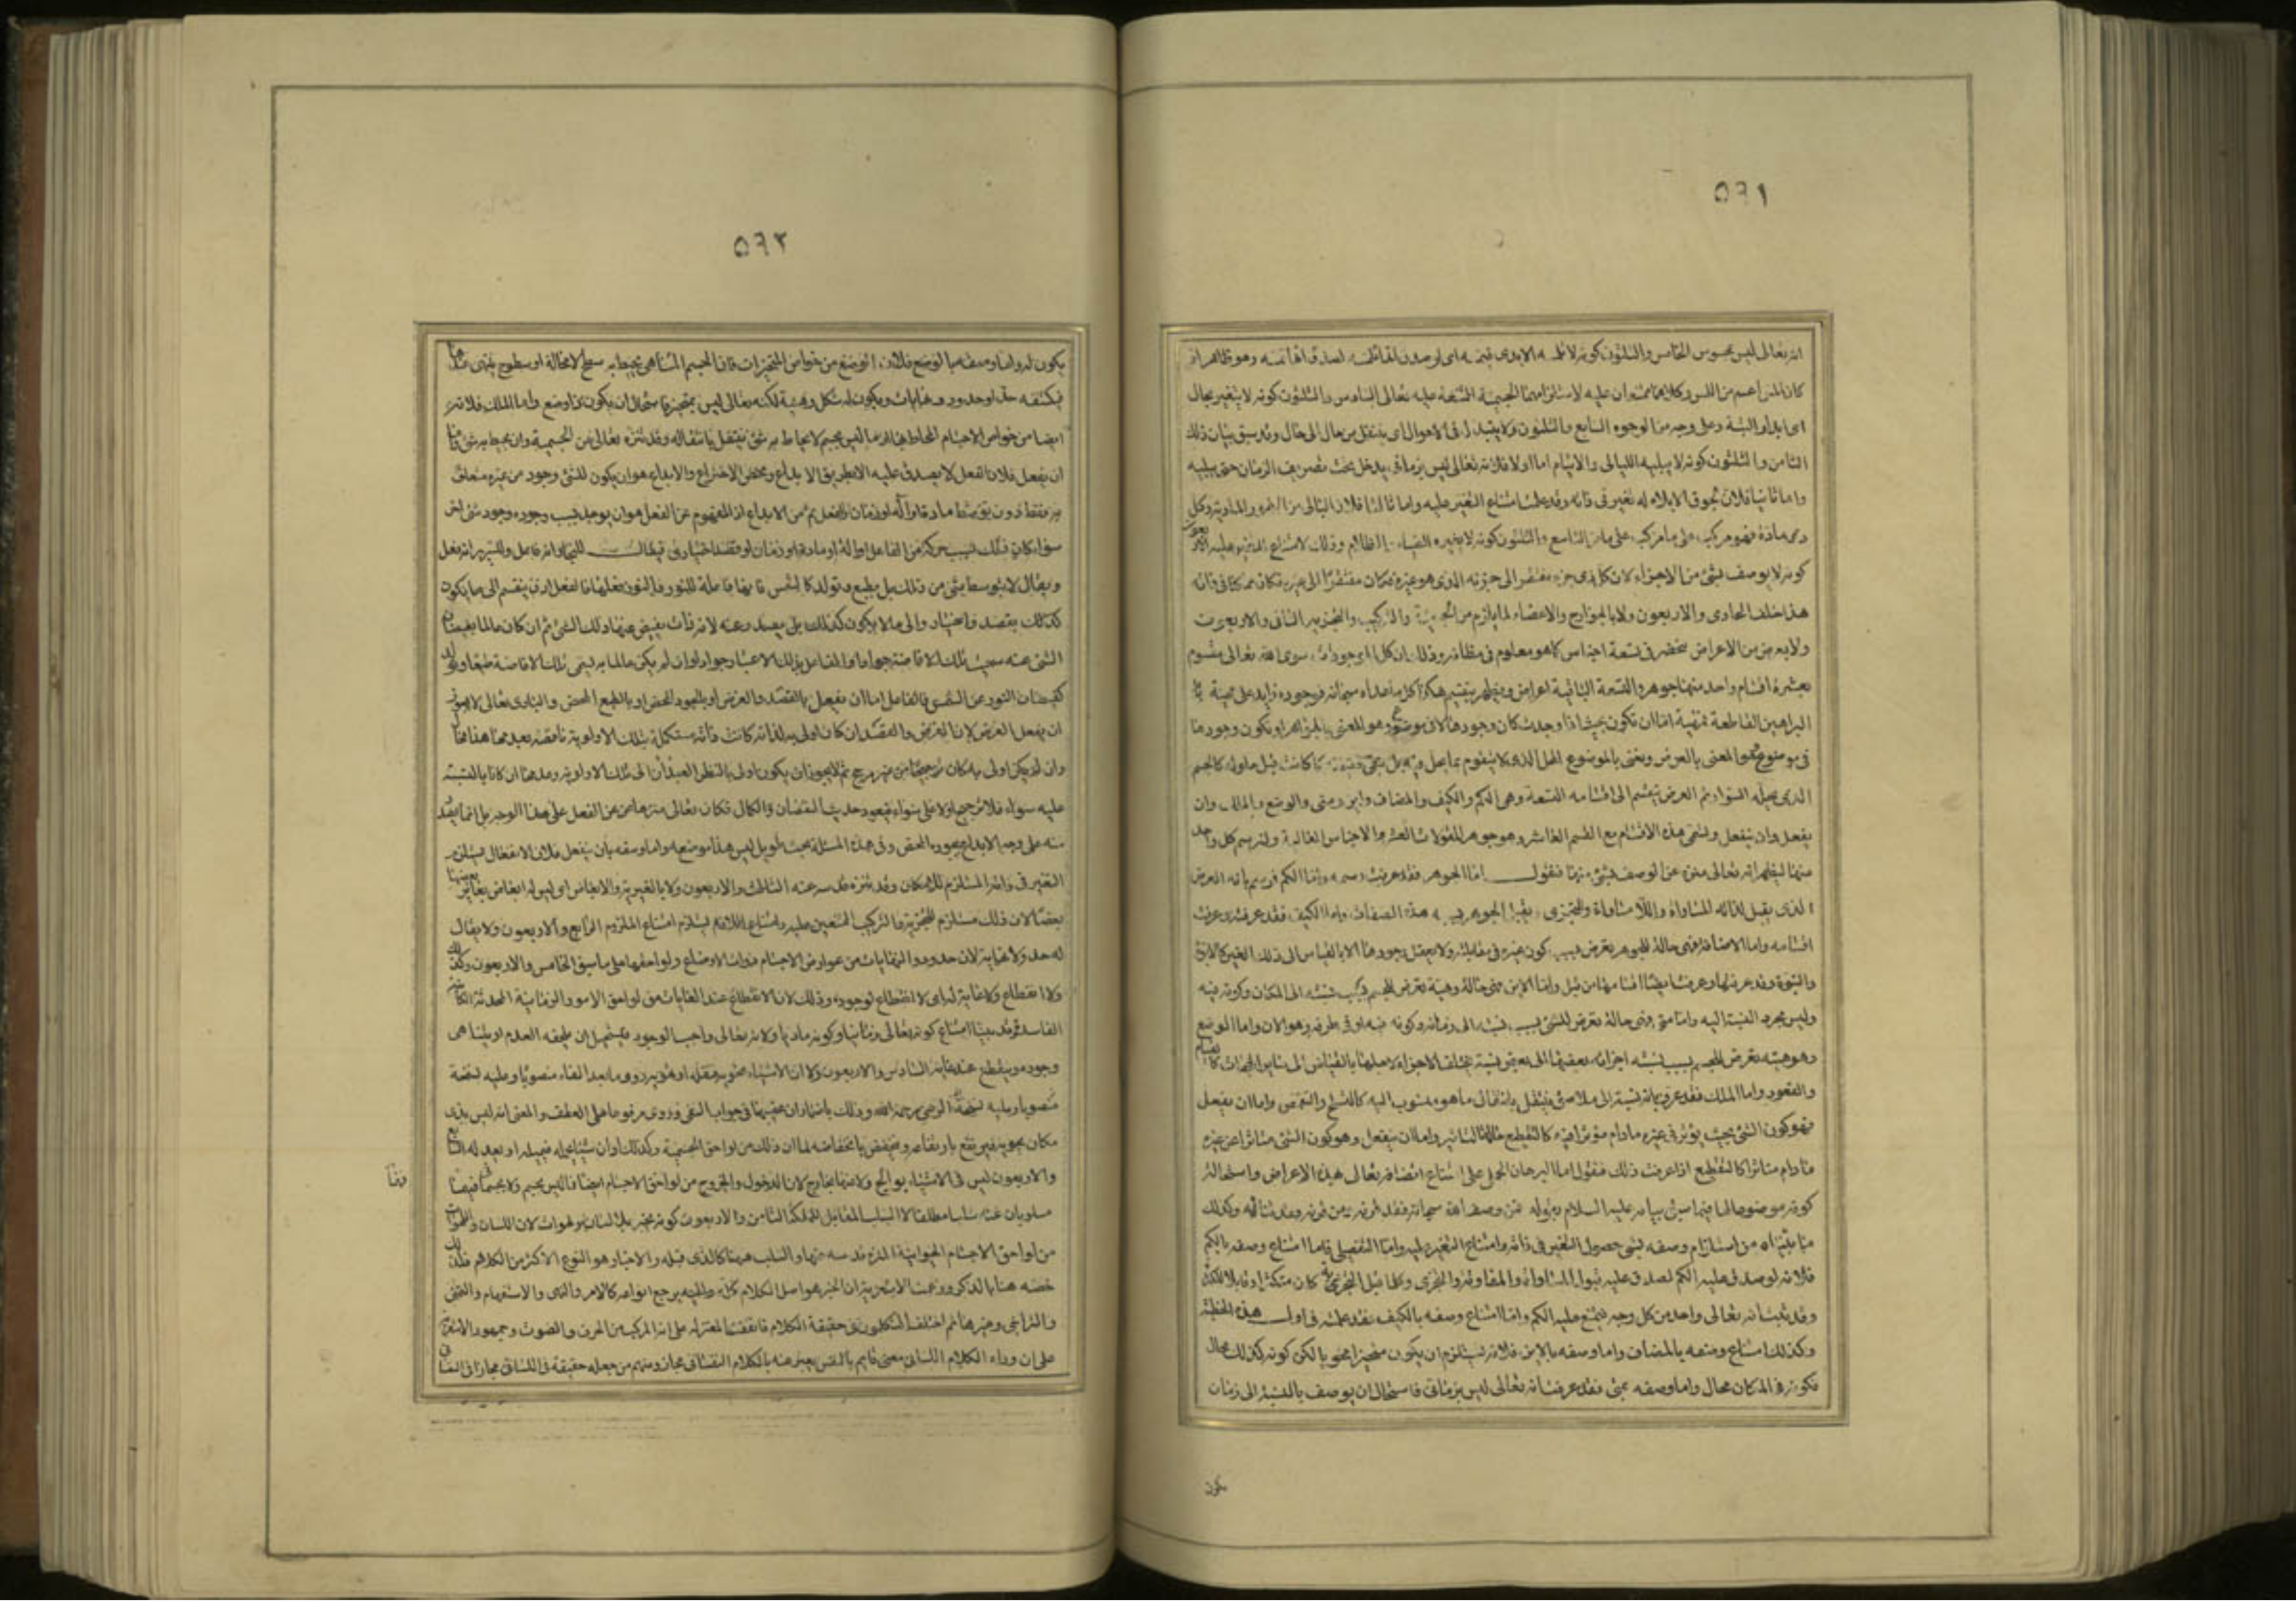 ٥٦١
انه تعالى ليس بمحسوس الخامس والثلثون كونه لا تلمسه الايدى فتمسه اى لو صدق لصدق انها تمسه وهو ظاهر اذ
كان المس اعم من اللمس وكلاهما ممتنعان عليه لاستلزامهما الجسمية الممتنعة عليه تعالى السادس والثلثون كونه لا يتغير بحال
اى ابدا والبتة وعلى وجه من الوجوه السابع والثلثون ولا يتبدل فى الاحوال اى ينتقل من حال الى حال وقد سبق بيان ذلك
الثامن والثلثون كونه لا يبليه الليالى والايام اما اولا فلانه تعالى ليس بزمانى يدخل تحت تصريف الزمان حتى يبليه
واما ثانيا فلان لحوق الابلاء له تغير فى ذاته وقد علمت امتناع التغير عليه واما ثالثا فلان البالى من المادية وكل
ذى مادة فهو مركب على ما مر التاسع والثلثون كونه لا يغيره الضياء والظلام وذلك لامتناع التغير عليه الاربعون
كونه لا يوصف بشئ من الاجزاء لان كل ذى جزء مفتقر الى جزئه الذى هو غيره فكان مفتقرا الى غيره فكان ممكنا فى ذاته
هذا خلف الحادى والاربعون ولا بالجوارح والاعضاء لما يلزم من الجزئية والتركيب والتجزية الثانى والاربعون
ولا بعرض من الاعراض منحصر فى تسعة اجناس كما هو معلوم فى مظانه وذلك ان كل الموجودات سوى الله تعالى مقسوم
بعشرة اقسام واحد منها جوهر والتسعة الباقية اعراض وينظم بتقسيم هكذا كل ما عداه سبحانه فوجوده زايد على مهيته
البراهين القاطعة فمهيته اما ان تكون بحيث اذا وجدت كان وجودها لا فى موضوع وهو المعنى بالجوهر او تكون وجودها
فى موضوع وهو المعنى بالعرض ونعنى بالموضوع المحل الذى لا يتقوم بما يحل فيه بل يبقى حقيقته كما كانت قبل حلوله كالجسم
الذى يحله السواد ثم العرض ينقسم الى اقسامه التسعة وهى الكم والكيف والمضاف واين ومتى والوضع والملك وان
يفعل وان ينفعل وتسمى هذه الاقسام مع القسم العاشر وهو جوهر المقولات العشر والاجناس العالية ولنرسم كل واحد
منها ليظهر انه تعالى منزه عن الوصف بشئ منها فنقول اما الجوهر فقد عرفت رسمه واما الكم فرسم بانه العرض
الذى يقبل لذاته المساواة واللا مساواة والتجزى ويقبل الجوهر بسببه هذه الصفات واما الكيف فقد عرفته وعرفت
اقسامه واما الاضافة فهى حالة للجوهر تعرض بسبب كون غيره فى مقابلته ولا يعقل وجودها الا بالقياس الى ذلك الغير كالابوة
والبنوة وقد عرفتها وعرفت ايضا اقسامها من قبل واما الاين فهى حالة وهيئة تعرض للجسم بسبب نسبته الى المكان وكونه فيه
وليس مجرد النسبة اليه واما متى فهى حالة تعرض للشئ بسبب نسبته الى زمانه وكونه فيه او فى طرفه وهو الان واما الوضع
فهو هيئة تعرض للجسم بسبب نسبة اجزائه بعضها الى بعض نسبة تختلف الاجزاء لاجلها بالقياس الى ساير الجهات كالقيام
والقعود واما الملك فقد عرف بانه نسبة الى ملاصق ينتقل بانتقال ما هو منسوب اليه كالتسلح والتقمص واما ان يفعل
فهو كون الشئ بحيث يؤثر فى غيره ما دام مؤثرا فيه كالتقطيع حالة التاثير واما ان ينفعل وهو كون الشئ متاثرا عن غيره
ما دام متاثرا كالتقطع اذا عرفت ذلك فنقول اما البرهان الجملى على امتناع اتصافه تعالى بهذه الاعراض واستحالة
كونه موضوعا لها فهو ما سبق بيانه عليه السلام بقوله فمن وصف الله سبحانه فقد قرنه ومن قرنه فقد ثناه وكذلك
ما بيناه من استلزام وصفه بشئ حصول التغير فى ذاته وامتناع التغير عليه واما التفصيلى فاما امتناع وصفه بالكم
فلانه لو صدق عليه الكم لصدق عليه قبول المساواة والمفاوتة والتجزى وكلما قبل التجزئة كان متكثرا وقابلا للكثرة
وقد ثبت انه تعالى واحد من كل وجه فيمتنع عليه الكم واما امتناع وصفه بالكيف فقد علمته فى اول هذه الخطبة
وكذلك امتناع وصفه بالمضاف واما وصفه بالاين فلانه يستلزم ان يكون متحيزا محويا لكن كونه كذلك محال
فكونه فى المكان محال واما وصفه بمتى فقد عرفت انه تعالى ليس بزمانى فاستحال ان يوصف بالنسبة الى زمان
يكون
٥٦٢
يكون له واما وصفه بالوضع فلان الوضع من خواص المتحيزات فان الجسم المتناهى يحيط به سطح لا محالة او سطوح ينتهى عندها
فيكتنفه حد او حدود ونهايات ويكون له شكل وهيئة لكنه تعالى ليس بمتحيز فاستحال ان يكون ذا وضع واما الملك فلانه
ايضا من خواص الاجسام المحاط بها اذ ما ليس بجسم لا يحاط به شئ ينتقل بانتقاله وقد تنزه تعالى عن الجسمية وان يحيط به شئ واما
ان يفعل فلان الفعل لا يصدق عليه الا بطريق الابداع ومحض الاختراع والابداع هو ان يكون للشئ وجود من غيره متعلق
به فقط دون توسط مادة او آلة او زمان والفعل اعم من الابداع اذ المفهوم عن الفعل هو ان يوجد بسبب وجوده وجود شئ اخر
سواء كان ذلك بسبب حركة من الفاعل او آلة او مادة او زمان او قصد اختيارى فيقال للنجار انه فاعل وللسرير انه فعل
ويقال لا بتوسط شئ من ذلك بل بطبع وتولد كالشمس فانها فاعلة للنور والنور فعلها فالفعل اذن ينقسم الى ما يكون
كذلك بقصد واختيار والى ما لا يكون كذلك بل يصدر عنه لانه ذات يفيض عنها ذلك الشئ ثم ان كان عالما بفيضان
الشئ عنه سميت تلك الافاضة جودا والفاعل بذلك الاعتبار جوادا وان لم يكن عالما به يسمى تلك الافاضة طبعا وتولد
كفيضان النور عن الشمس فالفاعل اما ان يفعل بالقصد والغرض او بالجود المحض او بالطبع المحض والبارى تعالى لا يجوز
ان يفعل الغرض لان الغرض والقصد ان كان اولى به لذاته كانت ذاته مستكملة بتلك الاولوية ناقصة بعدمها هذا محال
وان لم يكن اولى به كان ترجيحا من غير مرجح ثم لا يجوز ان يكون اولى بالنظر الى العبد لان تلك الاولوية وعدمها ان كانا بالنسبة
عليه سواء فلا ترجيح او لا على سواء فيعود حديث النقصان والكمال فكان تعالى منزها عن الفعل على هذا الوجه بل انما يصدر
منه على وجه الابداع بجوده المحض وفى هذه المسئلة بحث طويل ليس هذا موضعه واما وصفه بان ينفعل فلان الانفعال يستلزم
التغير فى ذاته المستلزم للامكان وقد تنزه قدسه عنه الثالث والاربعون ولا بالغيرية والابعاض اى ليس له ابعاض يغاير بعضها
بعضا لان ذلك مستلزم للتجزية والتركيب الممتنعين عليه وامتناع اللازم يستلزم امتناع الملزوم الرابع والاربعون ولا يقال
له حد ولا نهاية لان الحدود والنهايات من عوارض الاجسام ذوات الاوضاع ولواحقها على ما سبق الخامس والاربعون وكذلك
ولا انقطاع ولا غاية له اى لا انقطاع لوجوده وذلك لان الانقطاع عند الغايات من لواحق الامور الزمانية المحدثة الكائنة
الفاسدة وقد بينا امتناع كونه تعالى زمانيا وكونه ماديا ولانه تعالى واجب الوجود فيستحيل ان يلحقه العدم او يتناهى
وجوده وينقطع عند غايته السادس والاربعون ولا ان الاشياء تحويه فتقله او تهويه روى ما بعد الفاء منصوبا وعليه نسخة
منصوبا وعليه نسخة الرضى رحمه الله وذلك باضمار ان عقيبها فى جواب النفى وروى مرفوعا على العطف والمعنى انه ليس بذى
مكان يحويه فيرتفع بارتفاعه وينخفض بانخفاضه لما ان ذلك من لواحق الجسمية وكذلك او ان شيئا يحمله فيميله او يعدله السابع
والاربعون ليس فى الاشياء بوالج ولا عنها بخارج لان الدخول والخروج من لواحق الاجسام ايضا فما ليس بجسم ولا بجسمانى فهما
مسلوبان عنه سلبا مطلقا لا السلب المقابل للملكة الثامن والاربعون كونه يخبر بلا لسان ولهوات لان اللسان واللهوات
من لواحق الاجسام الحيوانية المنزه قدسه عنها والسلب ههنا كالذى قبله والاخبار هو النوع الاكثر من الكلام فلذلك
خصه هنا بالذكر وزعمت الاشعرية ان الخبر هو اصل الكلام كله واليه يرجع انواعه كالامر والنهى والاستفهام والتمنى
والترجى وغيرها ثم اختلف المتكلمون فى حقيقة الكلام فاتفقت المعتزلة على انه المركب من الحرف والصوت وجمهور الاشعرية
على ان وراء الكلام اللسانى معنى قايم بالنفس يعبر عنه بالكلام النفسانى مجاز ومنهم من جعله حقيقة فى اللسانى مجازا فى النفسانى